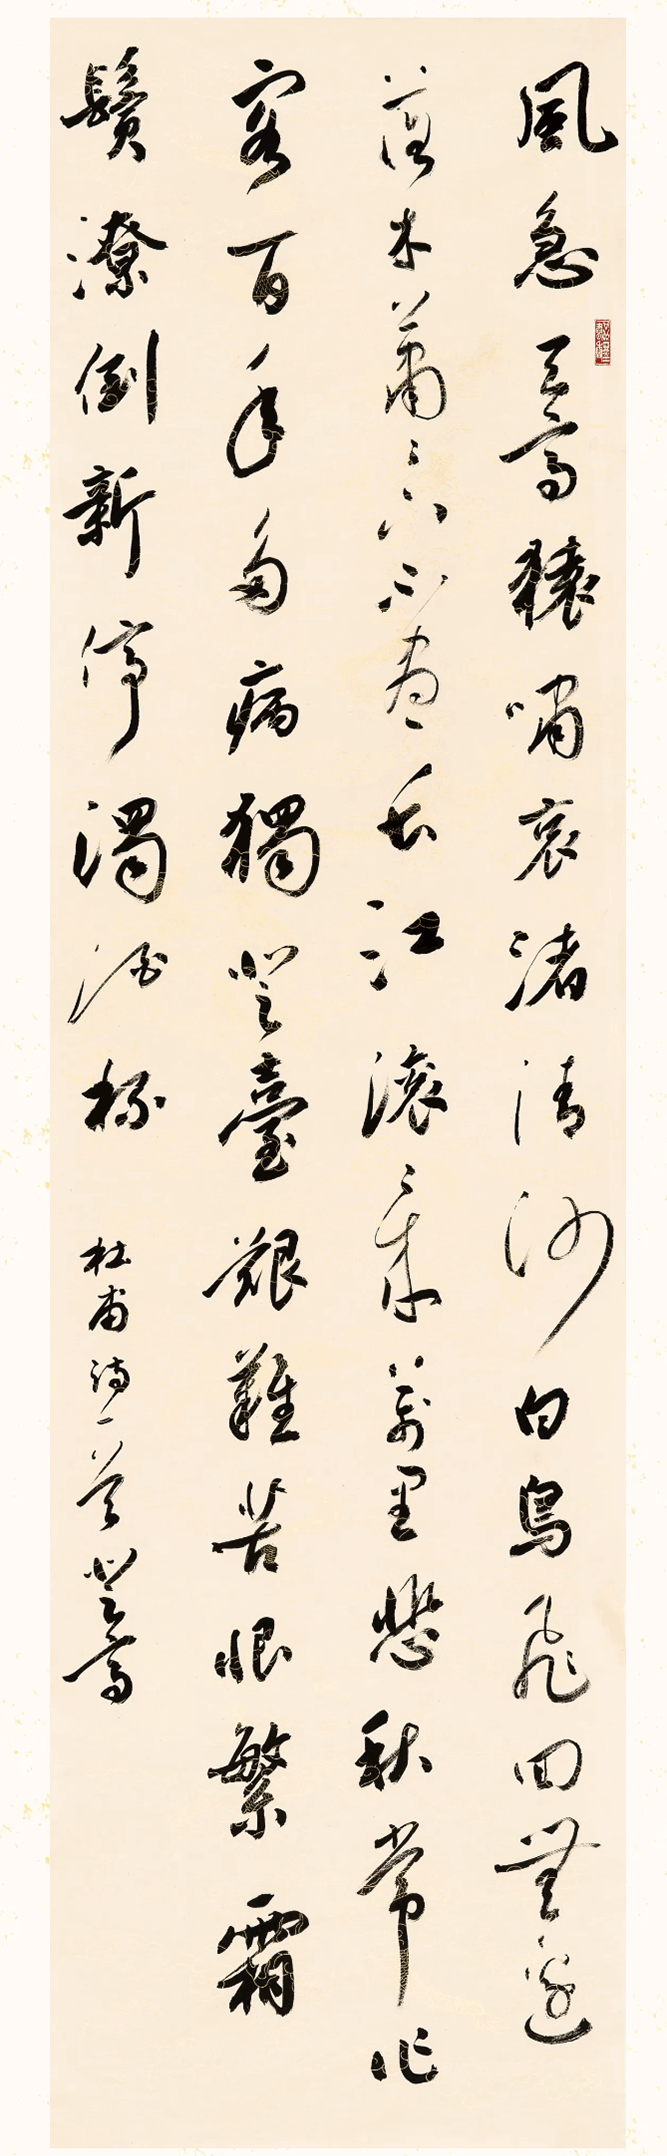 風急天高猿嘯哀渚清沙白鳥飛回無邊
落木蕭〻下不盡長江滾〻來萬里悲秋常作
客百年多病獨登臺艱難苦恨繁霜
鬢潦倒新停濁酒杯
杜甫詩一首登高